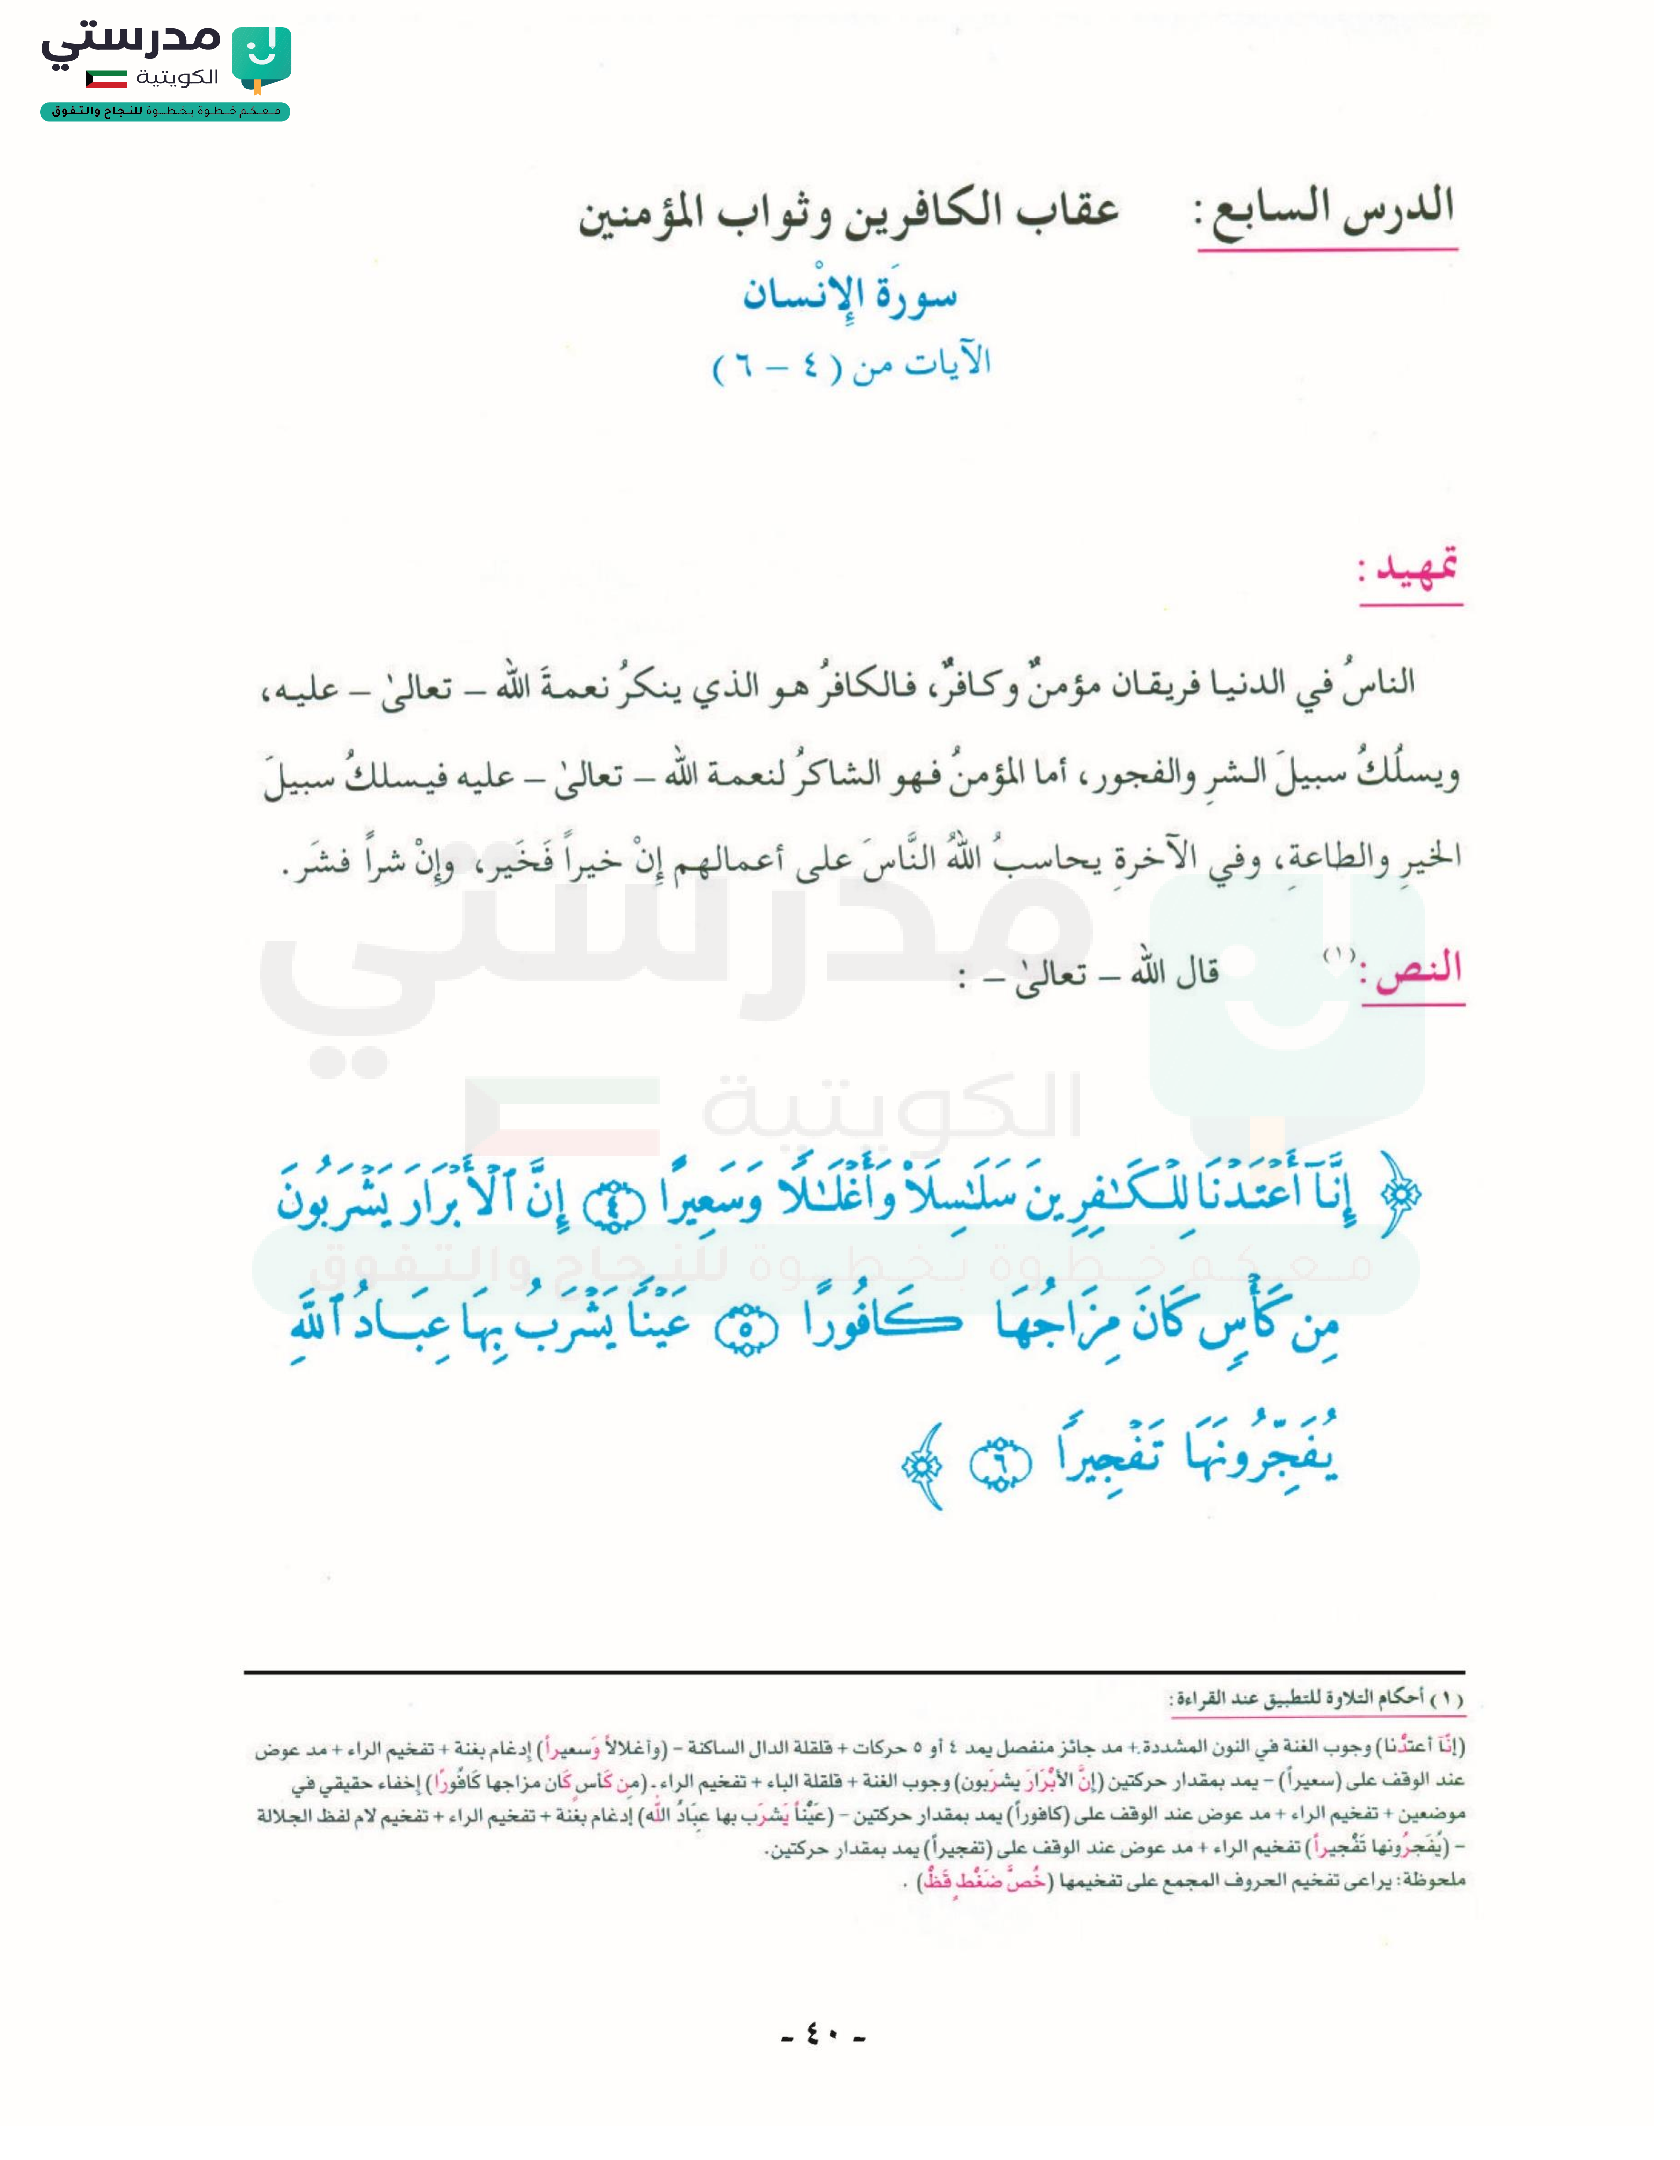 مدرستي
الكويتية
معكم خطوة بخطوة للنجاح والتفوق
الدرس السابع : عقاب الكافرين وثواب المؤمنين
سورَة الإِنْسان
الآيات من ( ٤ – ٦ )
تمهيد :
الناسُ في الدنيا فريقان مؤمنٌ وكافرٌ، فالكافرُ هو الذي ينكرُ نعمةَ الله – تعالىٰ – عليه،
ويسلُكُ سبيلَ الشرِ والفجور، أما المؤمنُ فهو الشاكرُ لنعمة الله – تعالىٰ – عليه فيسلكُ سبيلَ
الخيرِ والطاعةِ، وفي الآخرةِ يحاسبُ اللهُ النَّاسَ على أعمالهم إِنْ خيراً فَخَير، وإِنْ شراً فشَر .
النص :(١) قال الله – تعالىٰ – :
﴿ إِنَّآ أَعْتَدْنَا لِلْكَٰفِرِينَ سَلَٰسِلَا۟ وَأَغْلَٰلًا وَسَعِيرًا ٤ إِنَّ ٱلْأَبْرَارَ يَشْرَبُونَ
مِن كَأْسٍ كَانَ مِزَاجُهَا كَافُورًا ٥ عَيْنًا يَشْرَبُ بِهَا عِبَادُ ٱللَّهِ
يُفَجِّرُونَهَا تَفْجِيرًا ٦ ﴾
(١) أحكام التلاوة للتطبيق عند القراءة :
(إنَّآ أعتدْنا) وجوب الغنة في النون المشددة.+ مد جائز منفصل يمد ٤ أو ٥ حركات + قلقلة الدال الساكنة – (وأغلالاً وَسعيراً) إدغام بغنة + تفخيم الراء + مد عوض
عند الوقف على (سعيراً) – يمد بمقدار حركتين (إنَّ الأبْرَارَ يشرَبون) وجوب الغنة + قلقلة الباء + تفخيم الراء . (من كَأسٍ كَان مزاجها كَافُورًا) إخفاء حقيقي في
موضعين + تفخيم الراء + مد عوض عند الوقف على (كافوراً) يمد بمقدار حركتين – (عَيْناً يَشرَب بها عِبَادُ الله) إدغام بغنة + تفخيم الراء + تفخيم لام لفظ الجلالة
– (يُفَجرُونها تَفْجيراً) تفخيم الراء + مد عوض عند الوقف على (تفجيراً) يمد بمقدار حركتين.
ملحوظة: يراعى تفخيم الحروف المجمع على تفخيمها (خُصَّ ضَغْطٍ قَظْ) .
- ٤٠ -